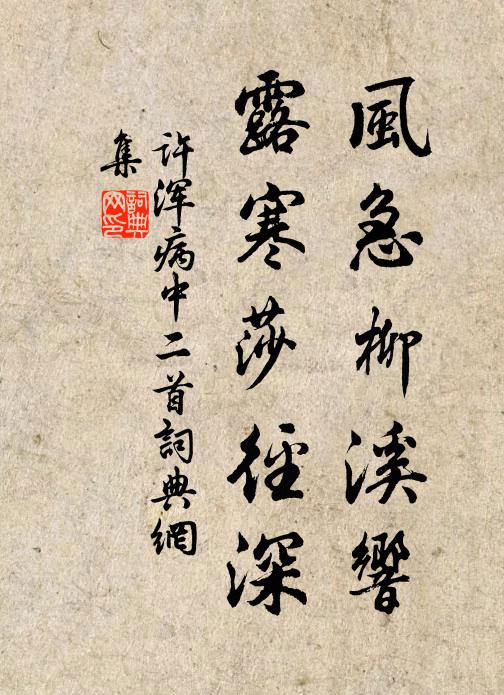 風急柳溪響
露寒莎徑深
許渾病中二首詞典網
集
詞典
网印